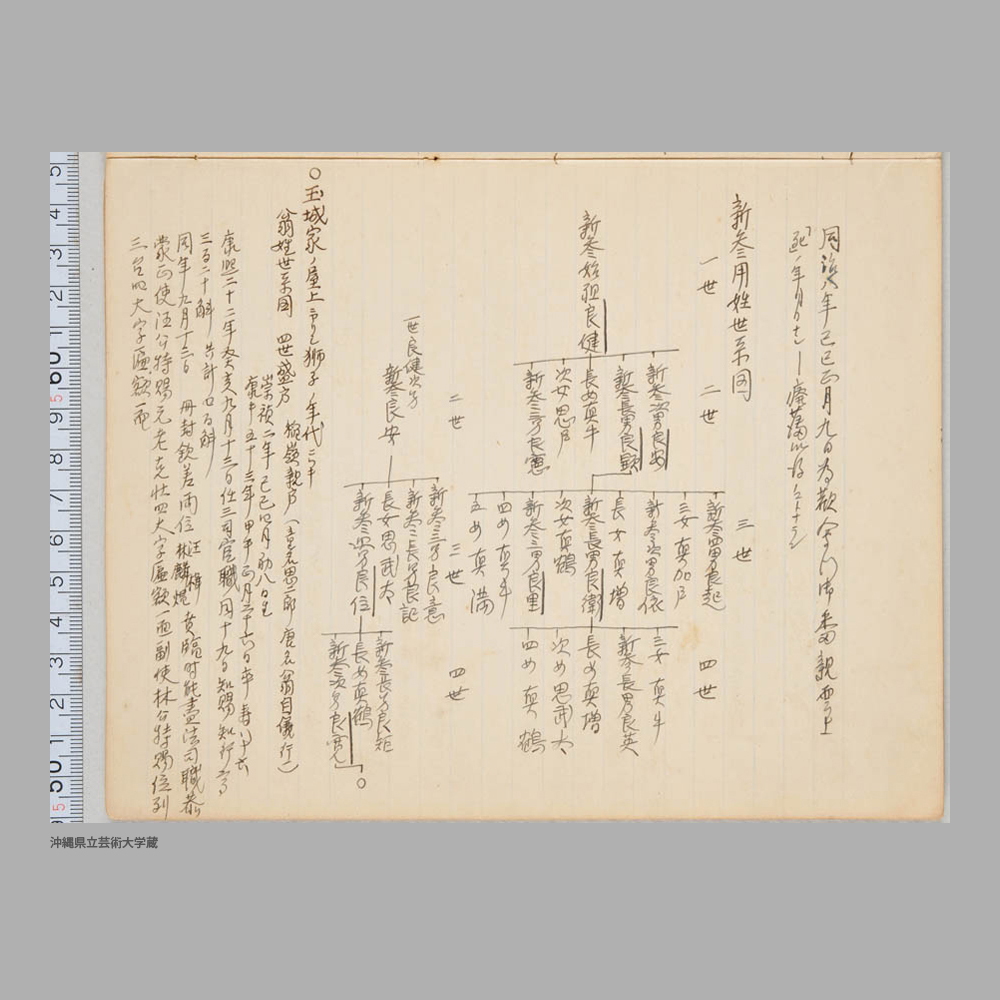 同治八年己巳正月九日為歓会門御番親雲上
新参用姓世系図
一世
二世
三世
四世
新参始祖良健
新参次男良安
新参長男良顕
長女真牛
次女思戸
新参三男良憲
新参四男良起
三女真加戸
新参次男良依
長女真増
新参長男良衛
次女真鶴
新参三男良里
四女真牛
五女真満
三女真牛
新参長男良英
長女真増
次女思武太
四女真鶴
二世
三世
四世
一世良健次男
新参良安
新参三男良意
新参二長男良記
長女思武太
新参次男良位
新参長男良矩
長女真鶴
新参次男良寛
○玉城家ノ屋上ニアリシ獅子ノ年代ニツキ
翁姓世系図 四世盛方
崇禎二年己巳四月初八日生
康熙五十三年甲午正月二十六日卒寿八十六
康熙二十二年癸亥九月十三日任三司官職同十九日知賜知行
三百二十斛共計四百斛
同年九月十三日 冊封欽差両位 汪楫 林麟焻 賁臨時能盡法司職恭
蒙正使汪公特賜元老克壮四大字匾額一面副使林公特賜位列
三台四大字匾額一面
沖縄県立芸術大学蔵
5
4
3
2
1
60
9
8
7
6
5
4
3
2
1
50